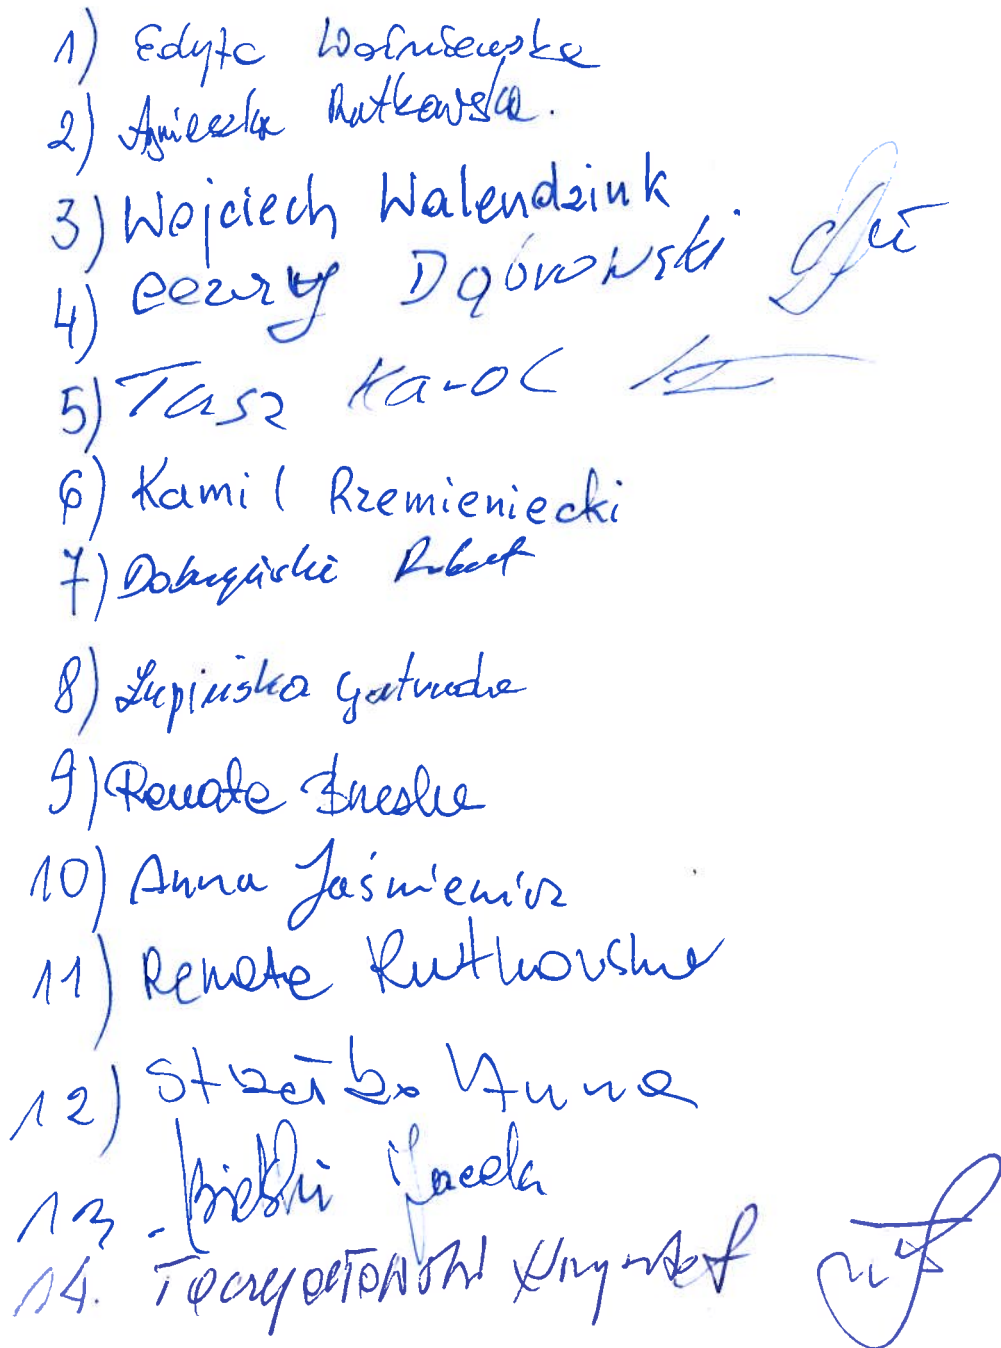 1) Edyta Woźniewska
2) Agnieszka Rutkowska.
3) Wojciech Walendziuk
4) Cezary Dąbrowski
5) Tusz Karol
6) Kamil Rzemieniecki
7) Dobrzyński Robert
8) Łupińska Gertruda
9) Renata
10) Anna Jaśniewicz
11) Renata Rutkowska
12) Anna
13. Bielski Jacek
14. Krzysztof